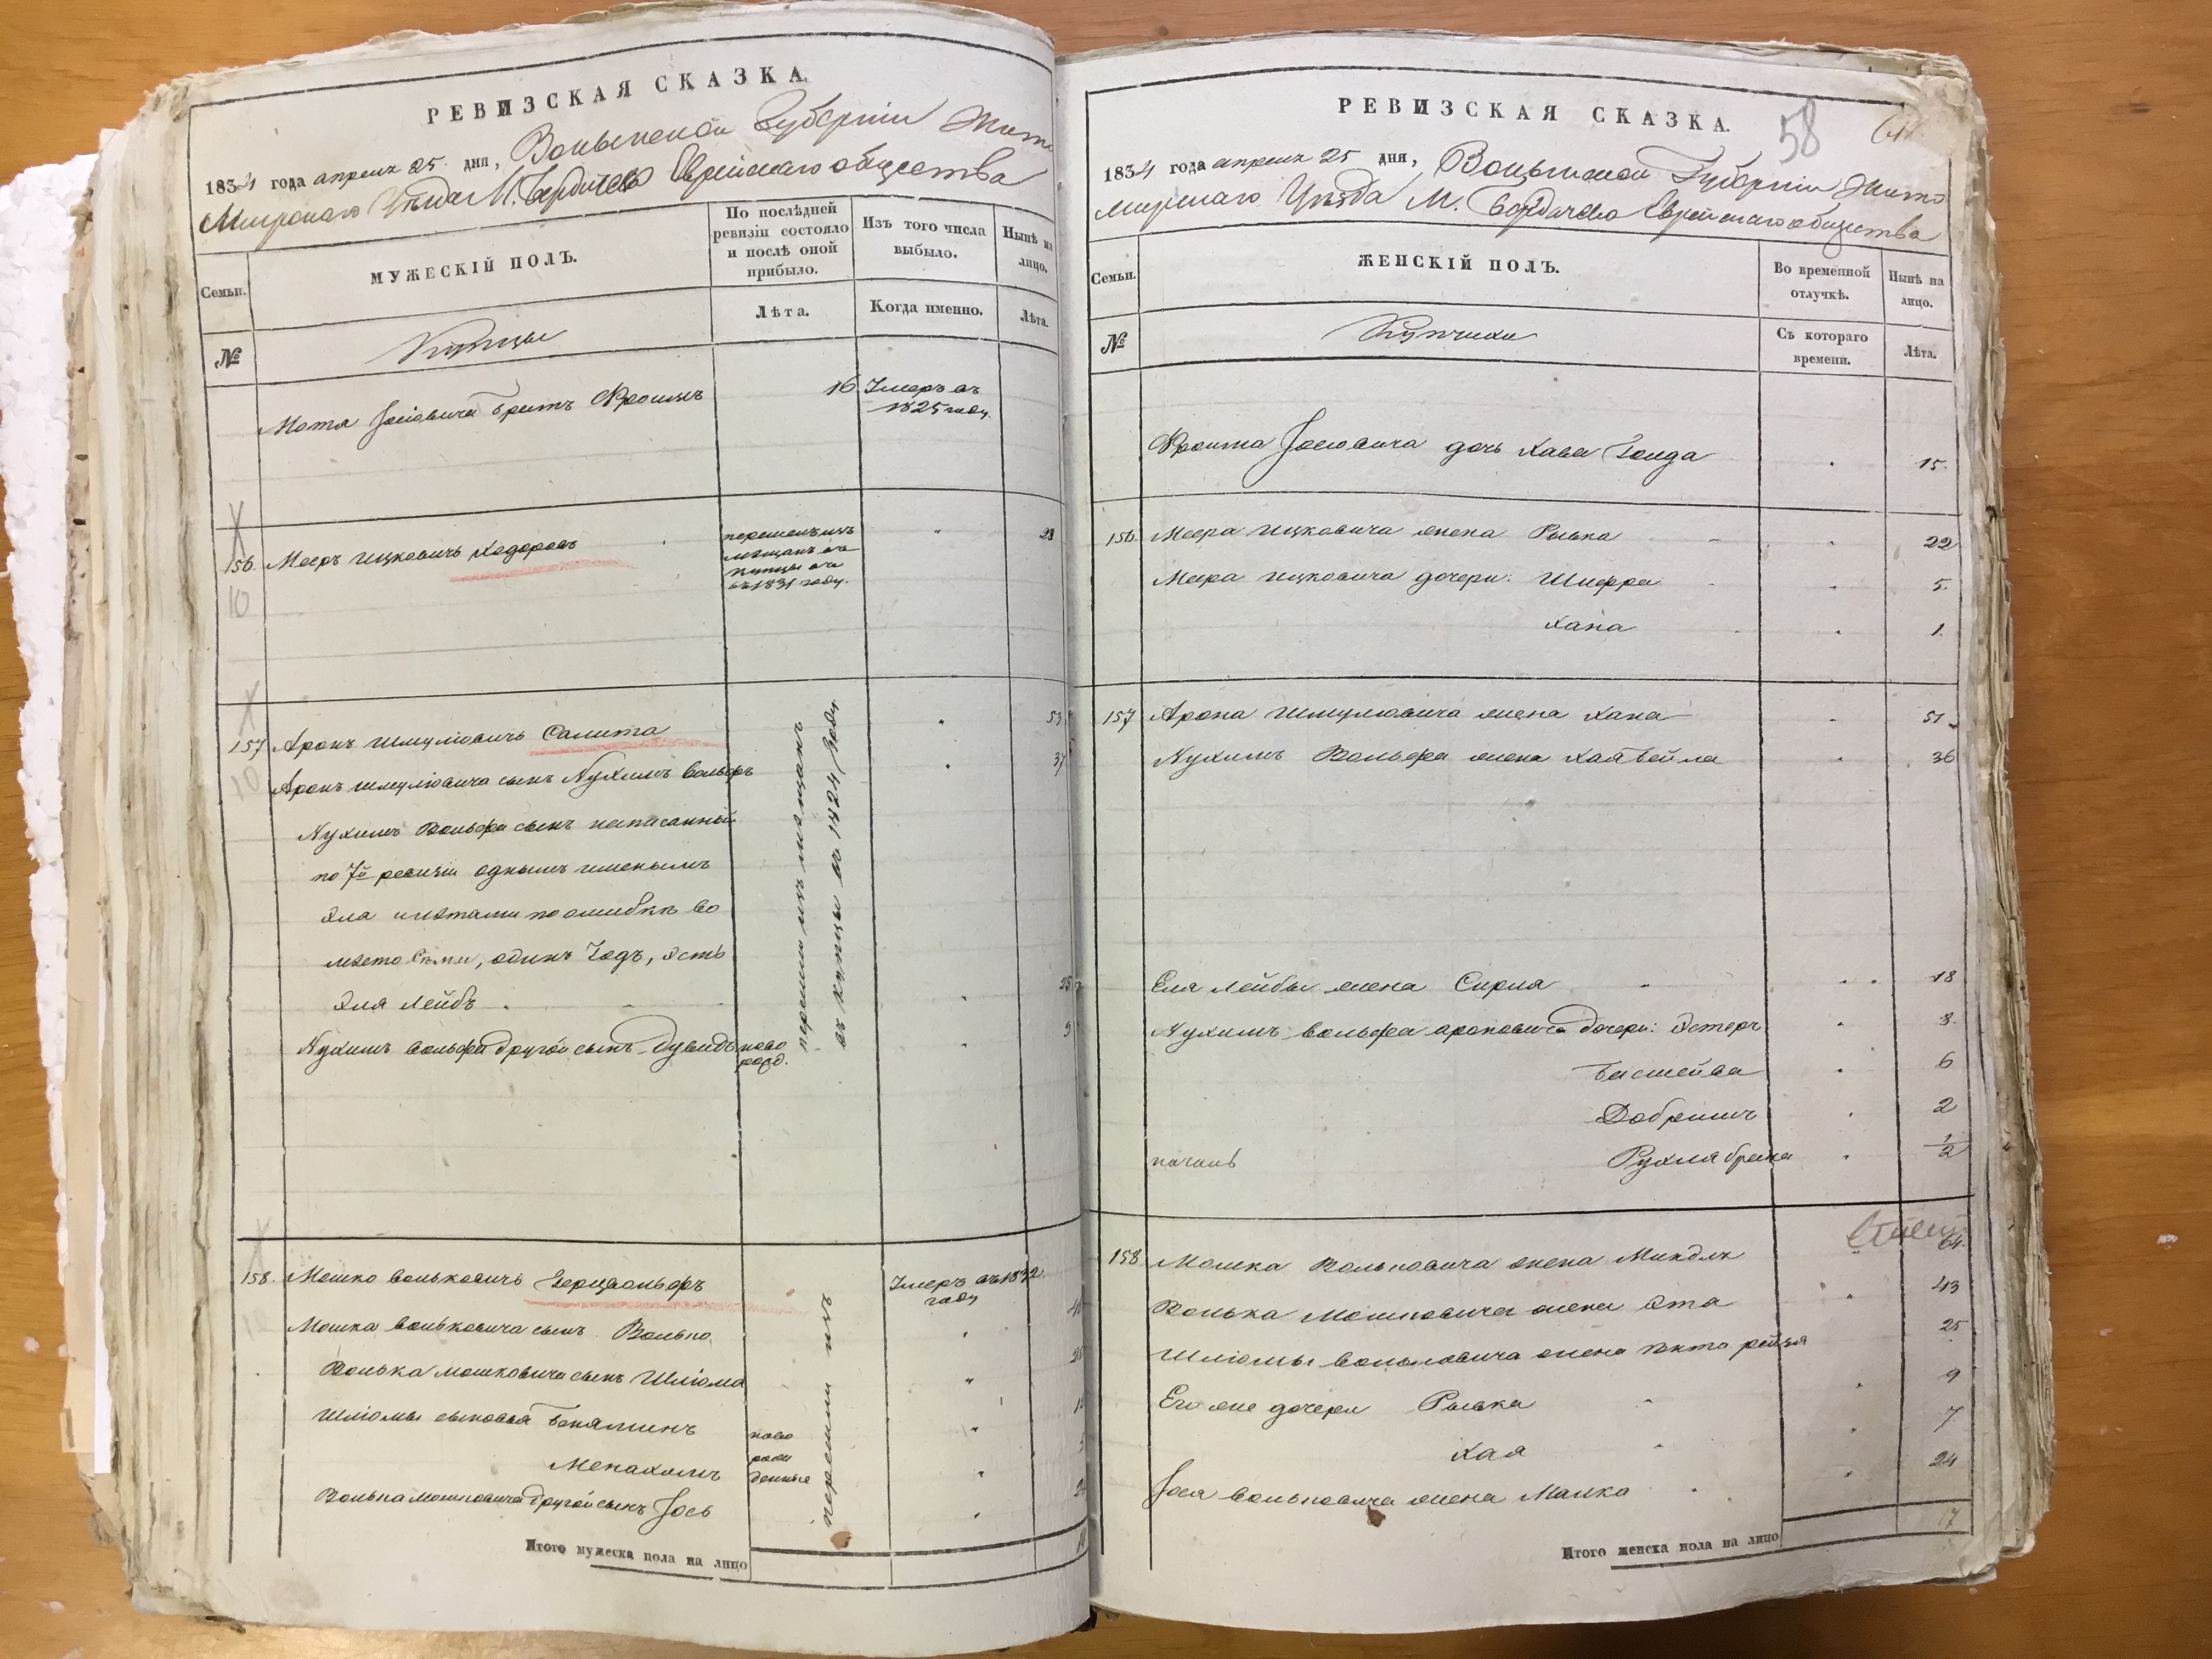 РЕВИЗСКАЯ СКАЗКА.
1834 года апреля 25 дня, Волынской Губерніи Жито
Мирскаго Уѣзда М. Бердичева Еврейскаго общества
Семьи.
МУЖЕСКІЙ ПОЛЪ.
По послѣдней ревизіи состояло и послѣ оной прибыло.
Изъ того числа выбыло.
Нынѣ на лицо.
Лѣта.
Когда именно.
Лѣта.
№
Купцы
Мота Іосіовича братъ Фроимъ 16 Умеръ въ
1825 году.
156. Мееръ Ицковичъ Ходоровъ 28
перешелъ изъ
мещанъ въ
купцы въ
1831 году.
10
157 Аронъ Шмуліовичъ Салита 53
10
Аронъ Шмуліовича сынъ Нухимъ Вольфъ 37
Нухимъ Вольфа сынъ написанный
по 7й ревизіи однымъ именымъ
Эла и летами по ошибкѣ во
место Семи, одинъ Годъ, есть
Эля Лейбъ
Нухимъ Вольфа другой сынъ Дувидъ ново
рожд. 9
перешли изъ мещанъ
въ купцы въ 1824 году
158. Мошко Вольковичъ Герцвольфъ Умеръ въ 1832
году
Мошка Вольковича сынъ Волько
Волька Мошковича сынъ Шліома
Шліомы сыновья Беняминъ ново
Менахимъ рож
денные
Волька Мошковича другой сынъ Іось
перешли изъ
Итого мужеска пола на лицо
РЕВИЗСКАЯ СКАЗКА.
58
1834 года апреля 25 дня, Волынской Губерніи Жито
мирскаго Уѣзда М. Бердичева Еврейскаго общества
Семьи.
ЖЕНСКІЙ ПОЛЪ.
Во временной отлучкѣ.
Нынѣ на лицо.
№
Купчихи
Съ котораго времени.
Лѣта.
Фроима Іосіовича дочь Хава Голда 15.
156. Меера Ицковича жена Рывка 22
Меера Ицковича дочери: Шифра 5.
Хана 1.
157 Арона Шмуліовича жена Хана 51
Нухимъ Вольфа жена Хая Бейла 36
Еля Лейбы жена Сирка 18
Нухимъ Вольфа Ароновича дочери: Эстеръ 8.
Басшейва 6
Добришъ 2
Рухля Брана 1/2
158 Мошка Вольковича жена Миндля 64.
Волька Мошковича жена Эта 43
Шліомы Вольковича жена Рейзя 25
Его же дочери Рывка 9
Хая 7
Іося Вольковича жена Малка 24
Итого женска пола на лицо 17